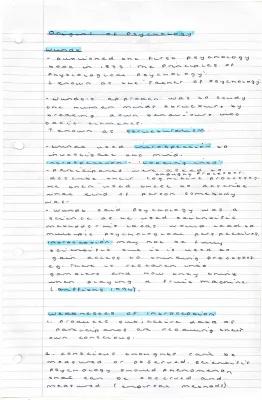 Origins of Psychology
Wundt
- Published the first psychology
book in 1873: The Principles of
Physiological Psychology.
known as the Father of Psychology
- Wundt's approach was to study
the human mind, structures by
breaking down behaviours into
basic elements.
known as structuralism
- Wundt used introspection to
investigate the mind.
introspection: looking into
- Participants were asked to
describe their conscious processes.
He then used these to describe
what kind of person somebody
was.
- Wundt said Psychology was a
science as he used scientific
methods. His ideas would lead to
multiple psychological perspectives.
Introspection may not be fully
scientific but it is used to
gain access to thinking processes
eg. there is research into
gamblers and how they think
when playing a fruit machine
(Griffiths 1994).
Weaknesses of Introspection
1. Produces subjective data as
participants are recalling their
own conscious.
2. conscious thoughts can't be
measured or observed. Scientific
Psychology should phenomenon
that can be observed and
measured (empirical methods).